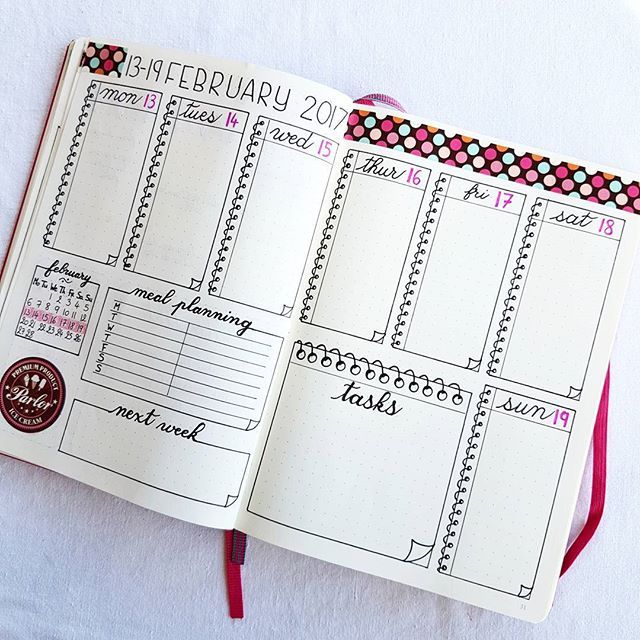 13-19 FEBRUARY 2017
mon 13
tues 14
wed 15
thur 16
fri 17
sat 18
february
Mo Tu We Th Fr Sa Su
1 2 3 4 5
6 7 8 9 10 11 12
13 14 15 16 17 18 19
20 21 22 23 24 25 26
27 28
meal planning
M
T
W
T
F
S
S
PREMIUM PRODUCT
Parlor
ICE CREAM
next week
tasks
sun 19